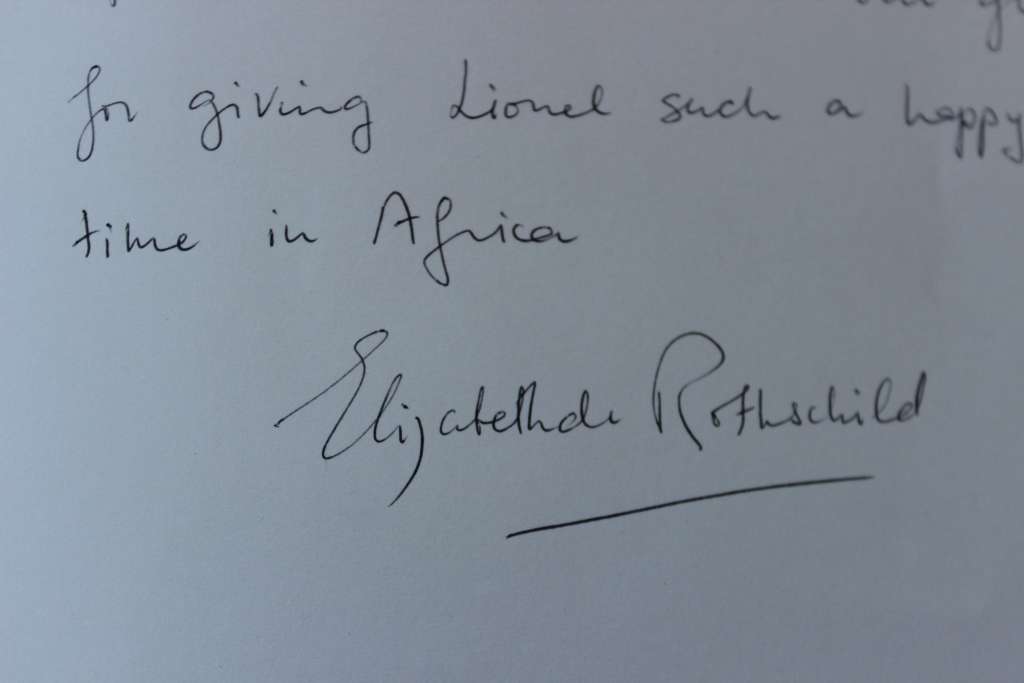 for giving Lionel such a happy
time in Africa
Elizabeth de Rothschild